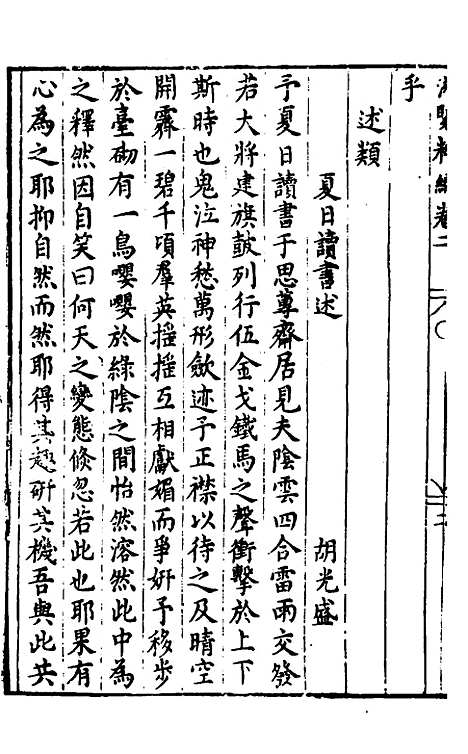 粹編卷二
乎
述類
夏日讀書述 胡光盛
予夏日讀書于思尊齋居見夫陰雲四合雷雨交發
若大將建旗鼓列行伍金戈鐵馬之聲衝擊於上下
斯時也鬼泣神愁萬形歛迹予正襟以待之及晴空
開霽一碧千頃羣英摇摇互相獻媚而爭姸予移步
於臺砌有一鳥嚶嚶於綠陰之間怡然溶然此中為
之釋然因自笑曰何天之變態倏忽若此也耶果有
心為之耶抑自然而然耶得其趣硏其機吾與此共